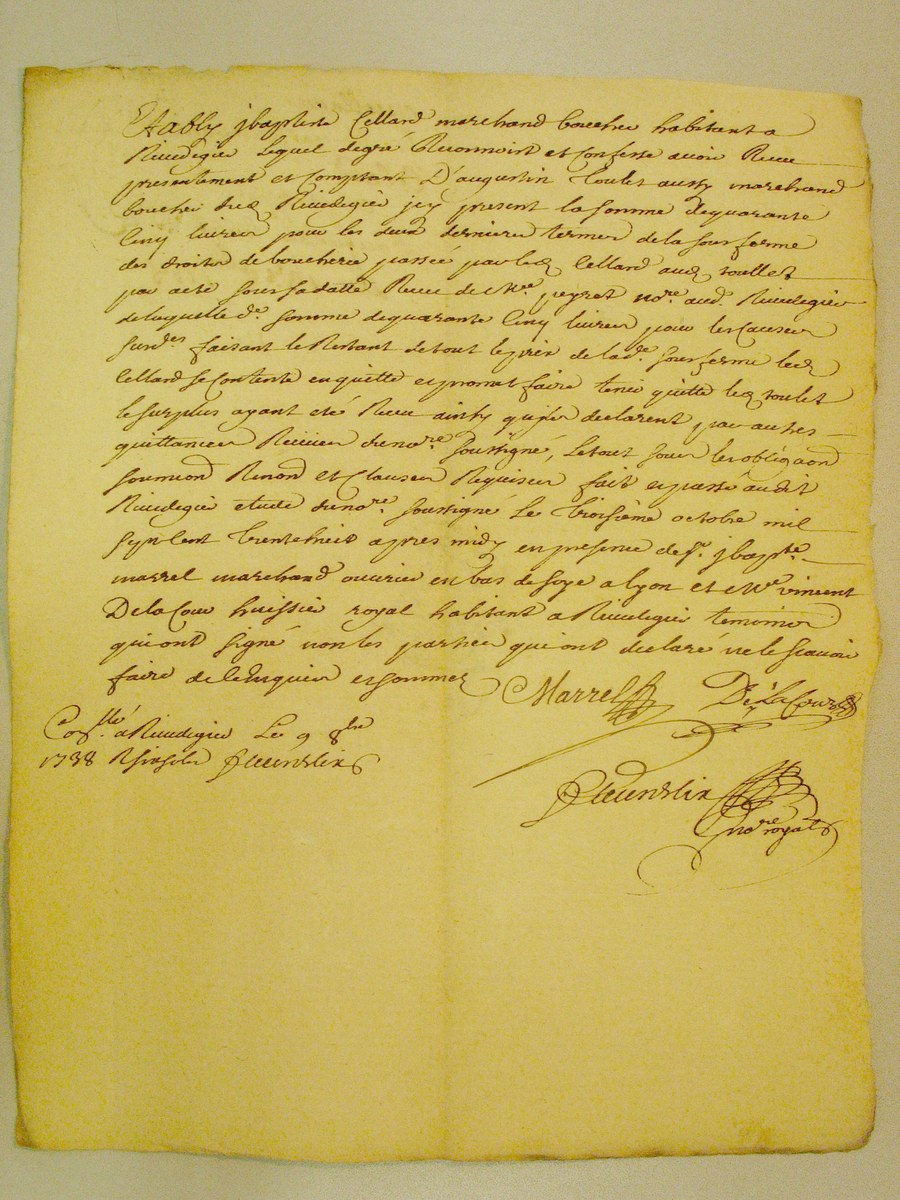 Etably jbaptiste Cellard marchand boucher habitant a
Rivedegier Lequel degré Reconnoist et Confesse avoir Receu
presentement et Comptant D'augustin toulet aussy marchand
boucher dud Rivedegier jcy present la somme dequarante
Cinq livres pour les deux derniers termes de la sous ferme
des droits de boucherie passée par led Cellard aud toullet
par acte sous sa datte Receu de Me. peyret nore. aud. Rivedegier
delaquelle de. somme dequarante Cinq livres pour les causes
susdes faisant le Restant detout leprix de lade. sous ferme led
Cellard se Contente enquitte et promet faire tenir quitte led toulet
le surplus ayant eté Receu ainsy qu'ils declarent par autres
quittances Reciües dunore soussigné, Le tout sous les obligaons
soumions Renons et Clauses Requises fait et passé audit
Rivedegier etude dunore. soussigné Le troisième octobre mil
sept Cent trente huit apres midy en presence de sr. jbapte.
marrel marchand ouvrier en bas de soye a Lyon et Me vincent
De la Cour huissier royal habitant a Rivedegier temoins
qui ont signé non les parties qui ont declaré ne le scavoir
faire de Cenquis et sommés Marrel De La Cour
Collé. a Rivedegier Le 9 8bre
1738 R six sols fleurdelix
fleurdelix
nore royal